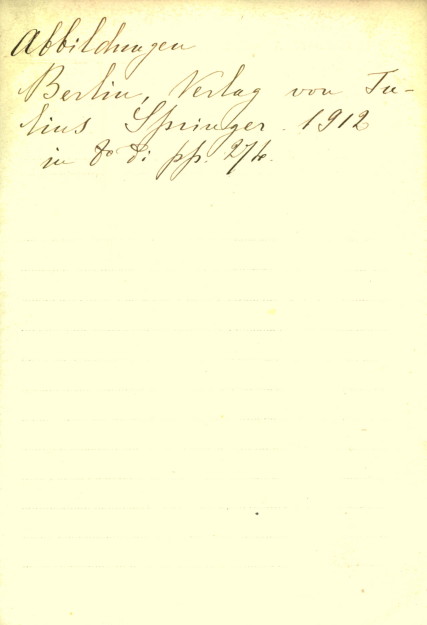 Abbildungen
Berlin, Verlag von Ju-
lius Springer. 1912
in 8° di pp. 276.